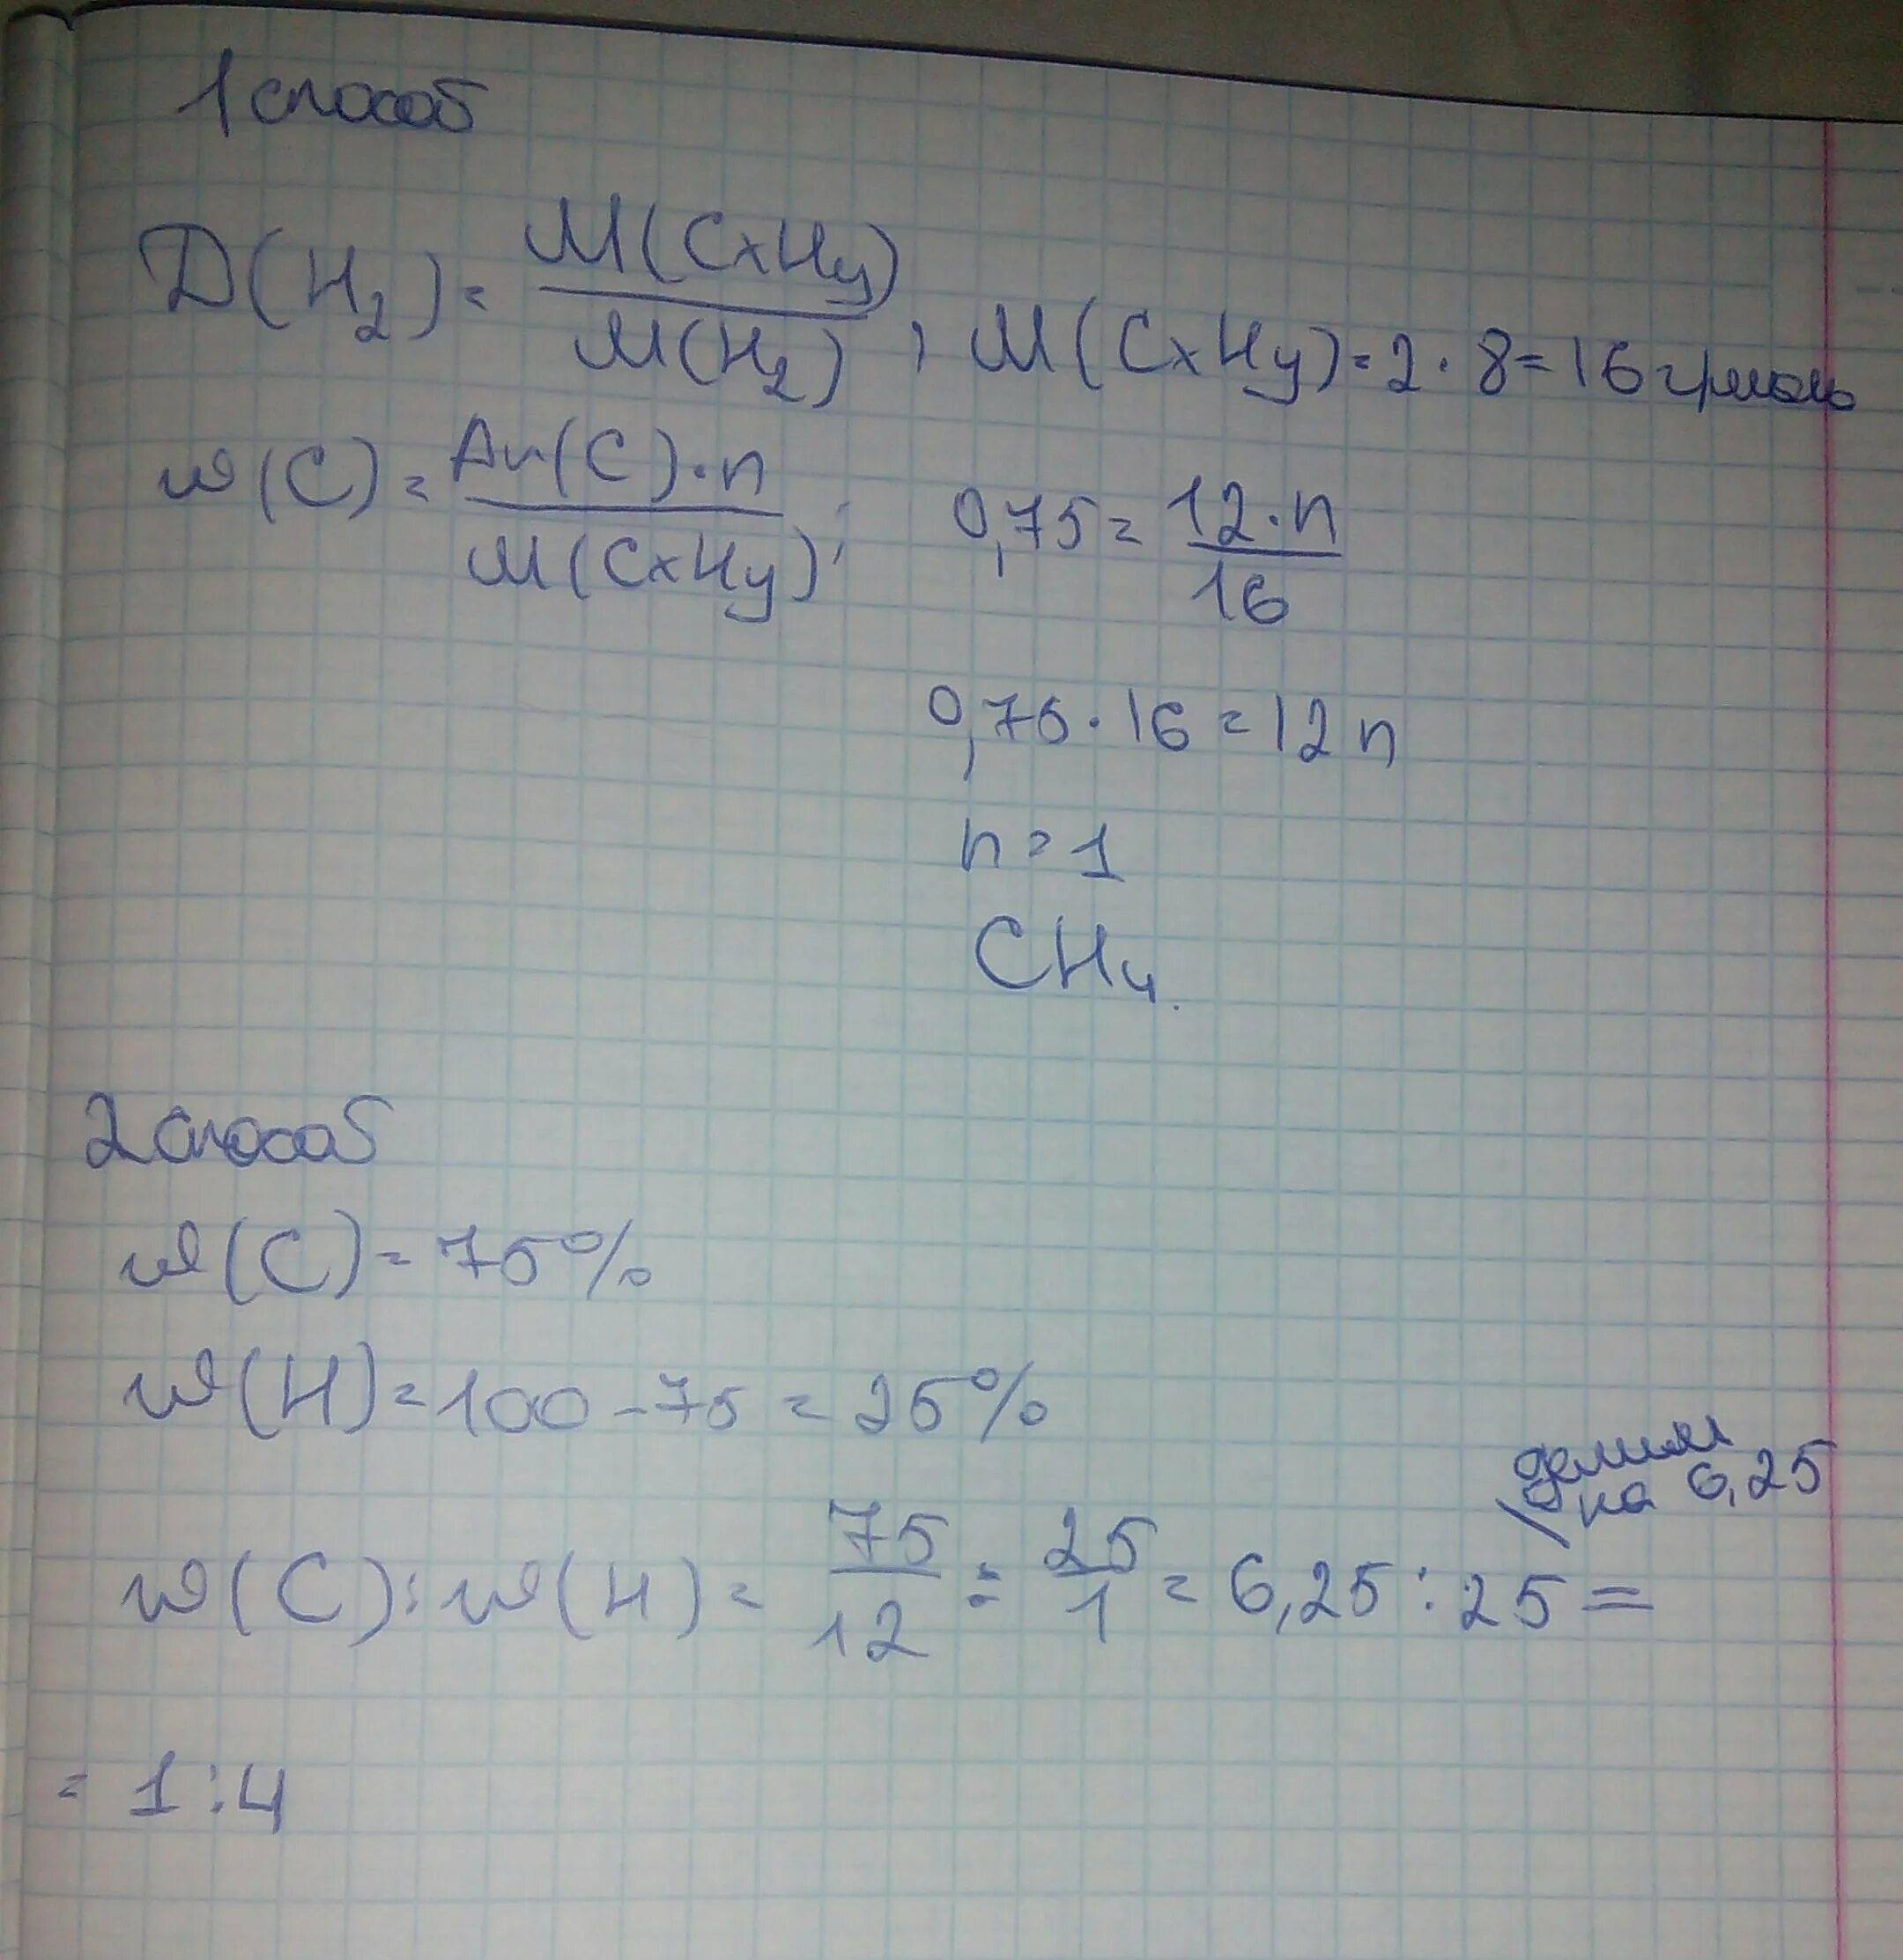 1 способ
Д(H₂) = M(CxHy) / M(H₂) ; M(CxHy) = 2 · 8 = 16 г/моль
w(C) = Ar(C) · n / M(CxHy) ; 0,75 = 12 · n / 16
0,75 · 16 = 12 n
n = 1
CH₄.
2 способ
w(C) = 75%
w(H) = 100 - 75 = 25%
делим
на 6,25
w(C) : w(H) = 75/12 : 25/1 = 6,25 : 25 =
= 1 : 4